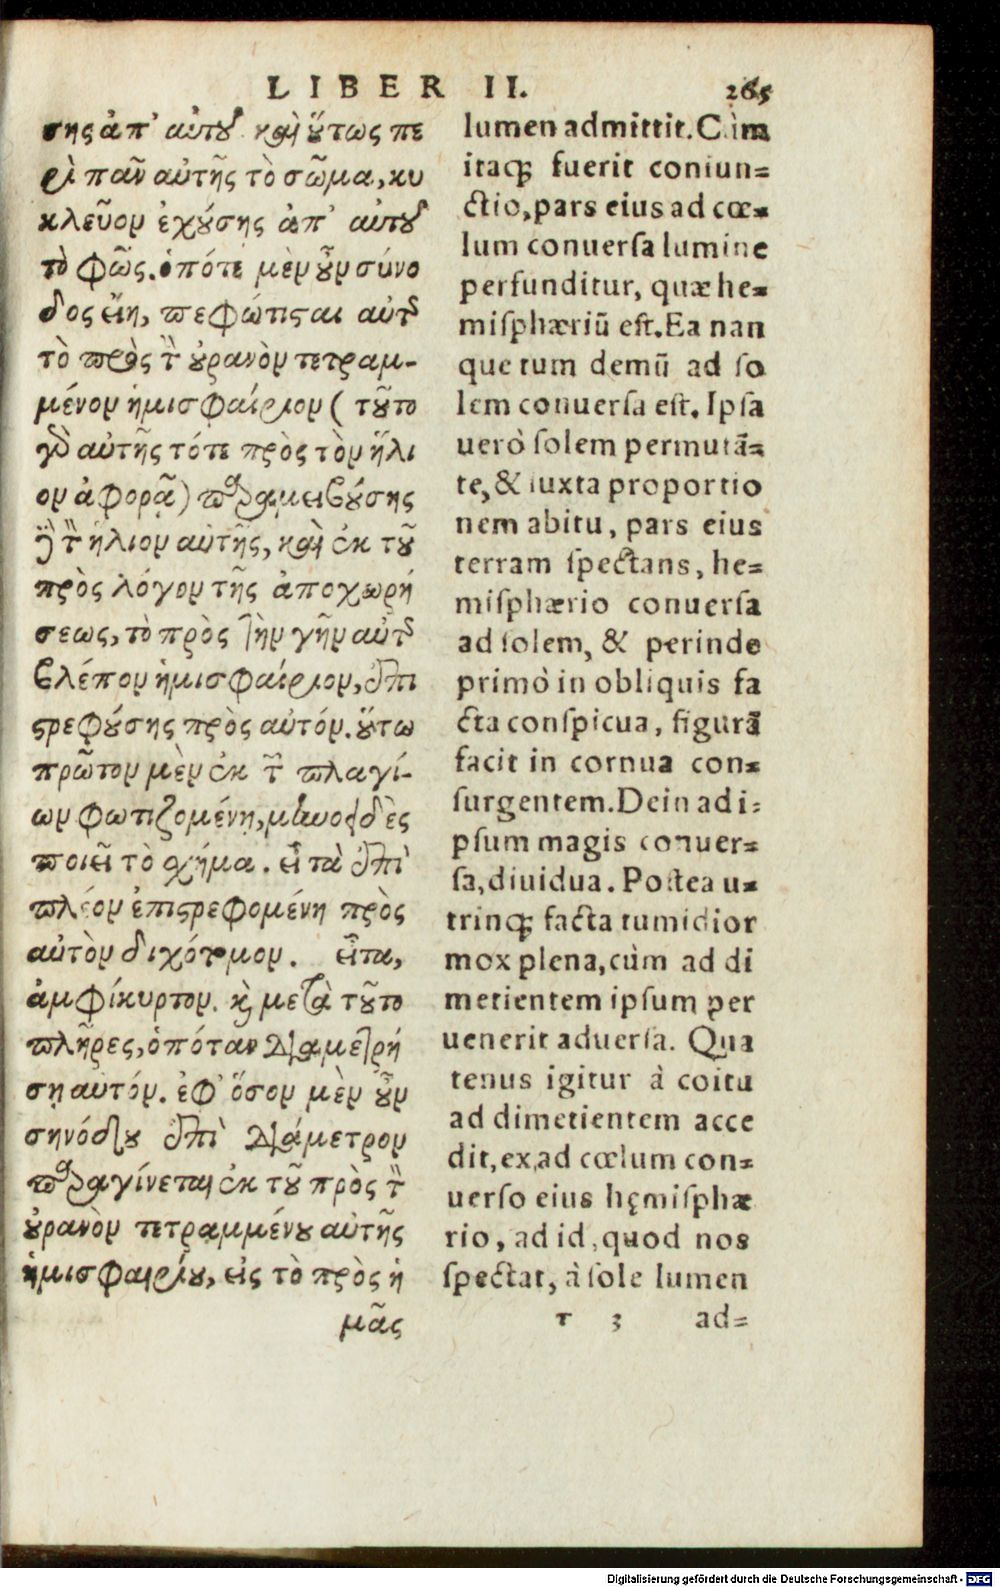 LIBER II. 265
σης ἀπ' αὐτοῦ καὶ οὕτως πε
ρὶ πᾶν αὐτῆς τὸ σῶμα, κυ
κλεῦον ἐχούσης ἀπ' αὐτοῦ
τὸ φῶς. ὁπότε μὲν οὖν σύνο
δος εἴη, πεφώτισται αὐτῆς
τὸ πρὸς τὸν οὐρανὸν τετραμ-
μένον ἡμισφαίριον (τοῦτο
γὰρ αὐτῆς τότε πρὸς τὸν ἥλι
ον ἀφορᾷ) παραμειβούσης
δὲ τὸν ἥλιον αὐτῆς, καὶ ἐκ τοῦ
πρὸς λόγον τῆς ἀποχωρή
σεως, τὸ πρὸς τὴν γῆν αὐτῆς
βλέπον ἡμισφαίριον, ἐπι
στρεφούσης πρὸς αὐτόν. οὕτω
πρῶτον μὲν ἐκ τῶν πλαγί-
ων φωτιζομένη, μηνοειδὲς
ποιεῖ τὸ σχῆμα. εἶτα ἐπὶ
πλέον ἐπιστρεφομένη πρὸς
αὐτὸν διχότομον. εἶτα,
ἀμφίκυρτον. καὶ μετὰ τοῦτο
πλῆρες, ὁπόταν διαμετρή
σῃ αὐτόν. ἐφ' ὅσον μὲν οὖν
σηνόδου ἐπὶ διάμετρον
παραγίνεται ἐκ τοῦ πρὸς τὸν
οὐρανὸν τετραμμένου αὐτῆς
ἡμισφαιρίου, εἰς τὸ πρὸς ἡ
μᾶς
lumen admittit. Cùm
itaq; fuerit coniun=
ctio, pars eius ad cœ=
lum conuersa lumine
perfunditur, quæ he=
misphæriũ est. Ea nan
que tum demũ ad so
lem conuersa est. Ipsa
uerò solem permutã=
te, & iuxta proportio
nem abitu, pars eius
terram spectans, he=
misphærio conuersa
ad solem, & perinde
primò in obliquis fa
cta conspicua, figurã
facit in cornua con=
surgentem. Dein ad i=
psum magis conuer=
sa, diuidua. Postea u=
trinq; facta tumidior
mox plena, cùm ad di
metientem ipsum per
uenerit aduersa. Qua
tenus igitur à coitu
ad dimetientem acce
dit, ex, ad cœlum con=
uerso eius hęmisphæ
rio, ad id, quod nos
spectat, à sole lumen
T 3 ad=
Digitalisierung gefördert durch die Deutsche Forschungsgemeinschaft - DFG